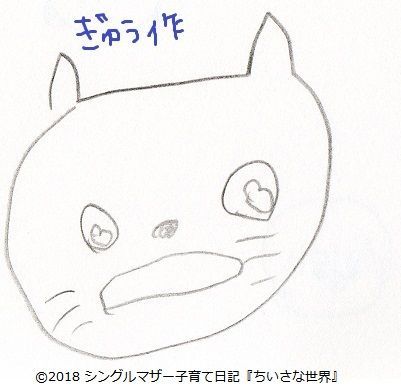 ぎゅう作
©2018 シングルマザー子育て日記『ちいさな世界』